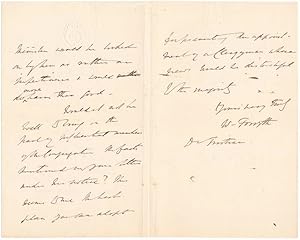 Minister would be looked
on by him as rather an
impertinence & would
more harm than good.
Would it not be
well to bring in the
of influential members
of the Congregation the facts
mentioned in your letter
under his notice? This
seems to me the best
plan you can adopt
for preventing the appoint-
ment of a Clergyman whose
views would be distasteful
to the majority
Yours very truly
W. Forsyth
Dr